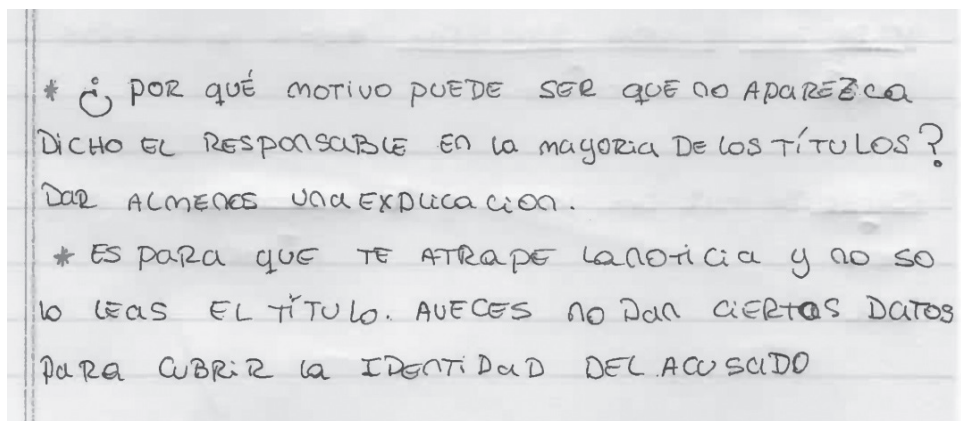 * ¿ POR QUÉ MOTIVO PUEDE SER QUE NO APAREZCA
DICHO EL RESPONSABLE EN LA MAYORIA DE LOS TÍTULOS?
DAR ALMENOS UNA EXPLICACION.
* ES PARA QUE TE ATRAPE LANOTICIA Y NO SO
LO LEAS EL TÍTULO. AVECES NO DAN CIERTOS DATOS
PARA CUBRIR LA IDENTIDAD DEL ACUSADO